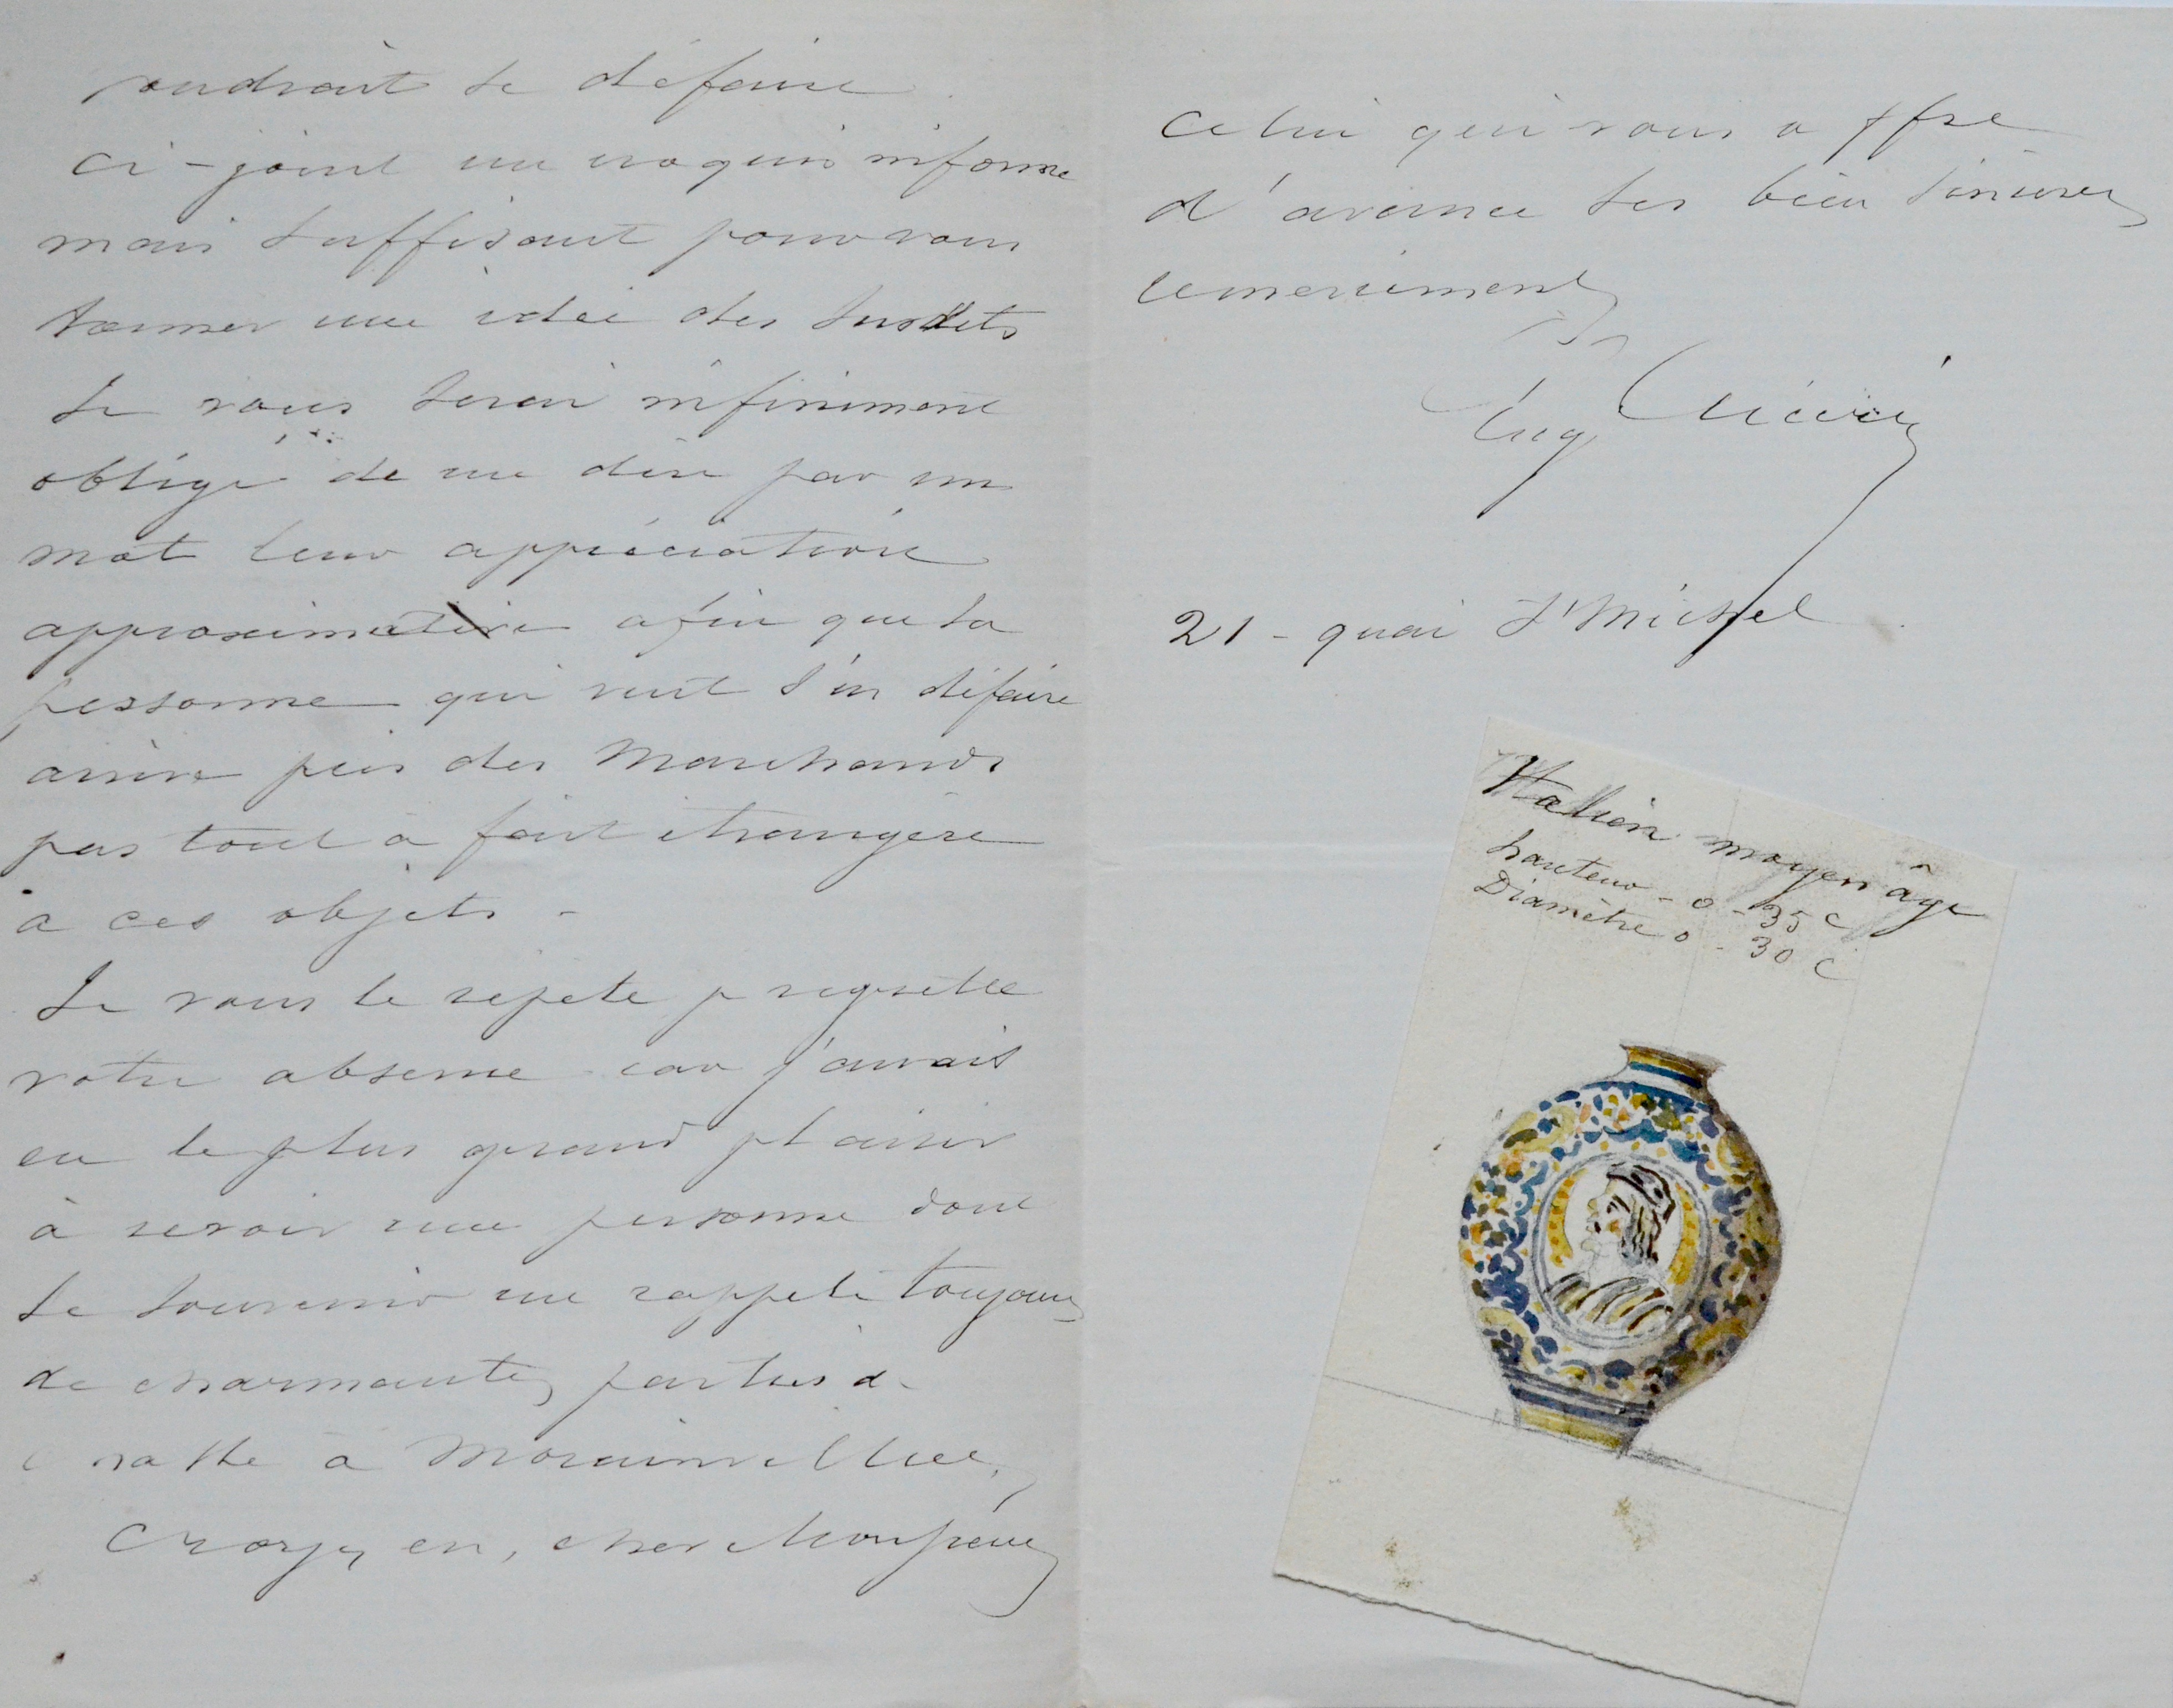 voudrait se défaire
ci-joint un croquis informe
mais suffisant pour vous
donner une idée des susdits
Je vous serai infiniment
obligé de me dire par un
mot leur appréciation
approximative afin que la
personne qui veut s'en défaire
arrive près des Marchands
pas tout à fait étrangère
à ces objets -
Je vous le répète je regrette
votre absence car j'aurais
eu le plus grand plaisir
à revoir une personne dont
le souvenir me rappele toujours
de charmantes parties de
à
Croyez en, cher Monsieur
celui qui vous offre
d'avance ses bien sincères
remerciments
Eug
21 - quai St Michel
Italien moyen âge
hauteur - 0 - 35 c
Diamètre 0 - 30 c